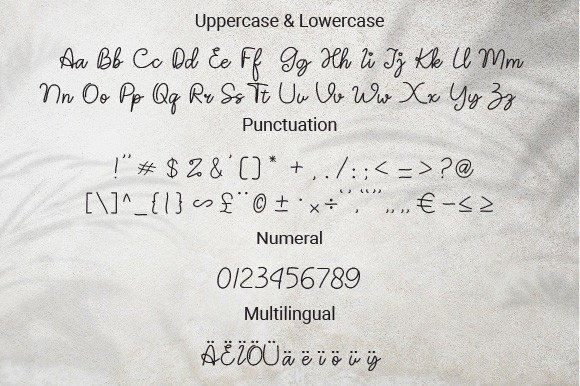 Uppercase & Lowercase
Aa Bb Cc Dd Ee Ff Gg Hh Ii Jj Kk Ll Mm
Nn Oo Pp Qq Rr Ss Tt Uu Vv Ww Xx Yy Zz
Punctuation
!"#$%&'()*+,./:;<=>?@
[\]^_{|}~£¨©±·×÷‘’‚“”„€−≤≥
Numeral
0123456789
Multilingual
ÄËÏÖÜäëïöüÿ